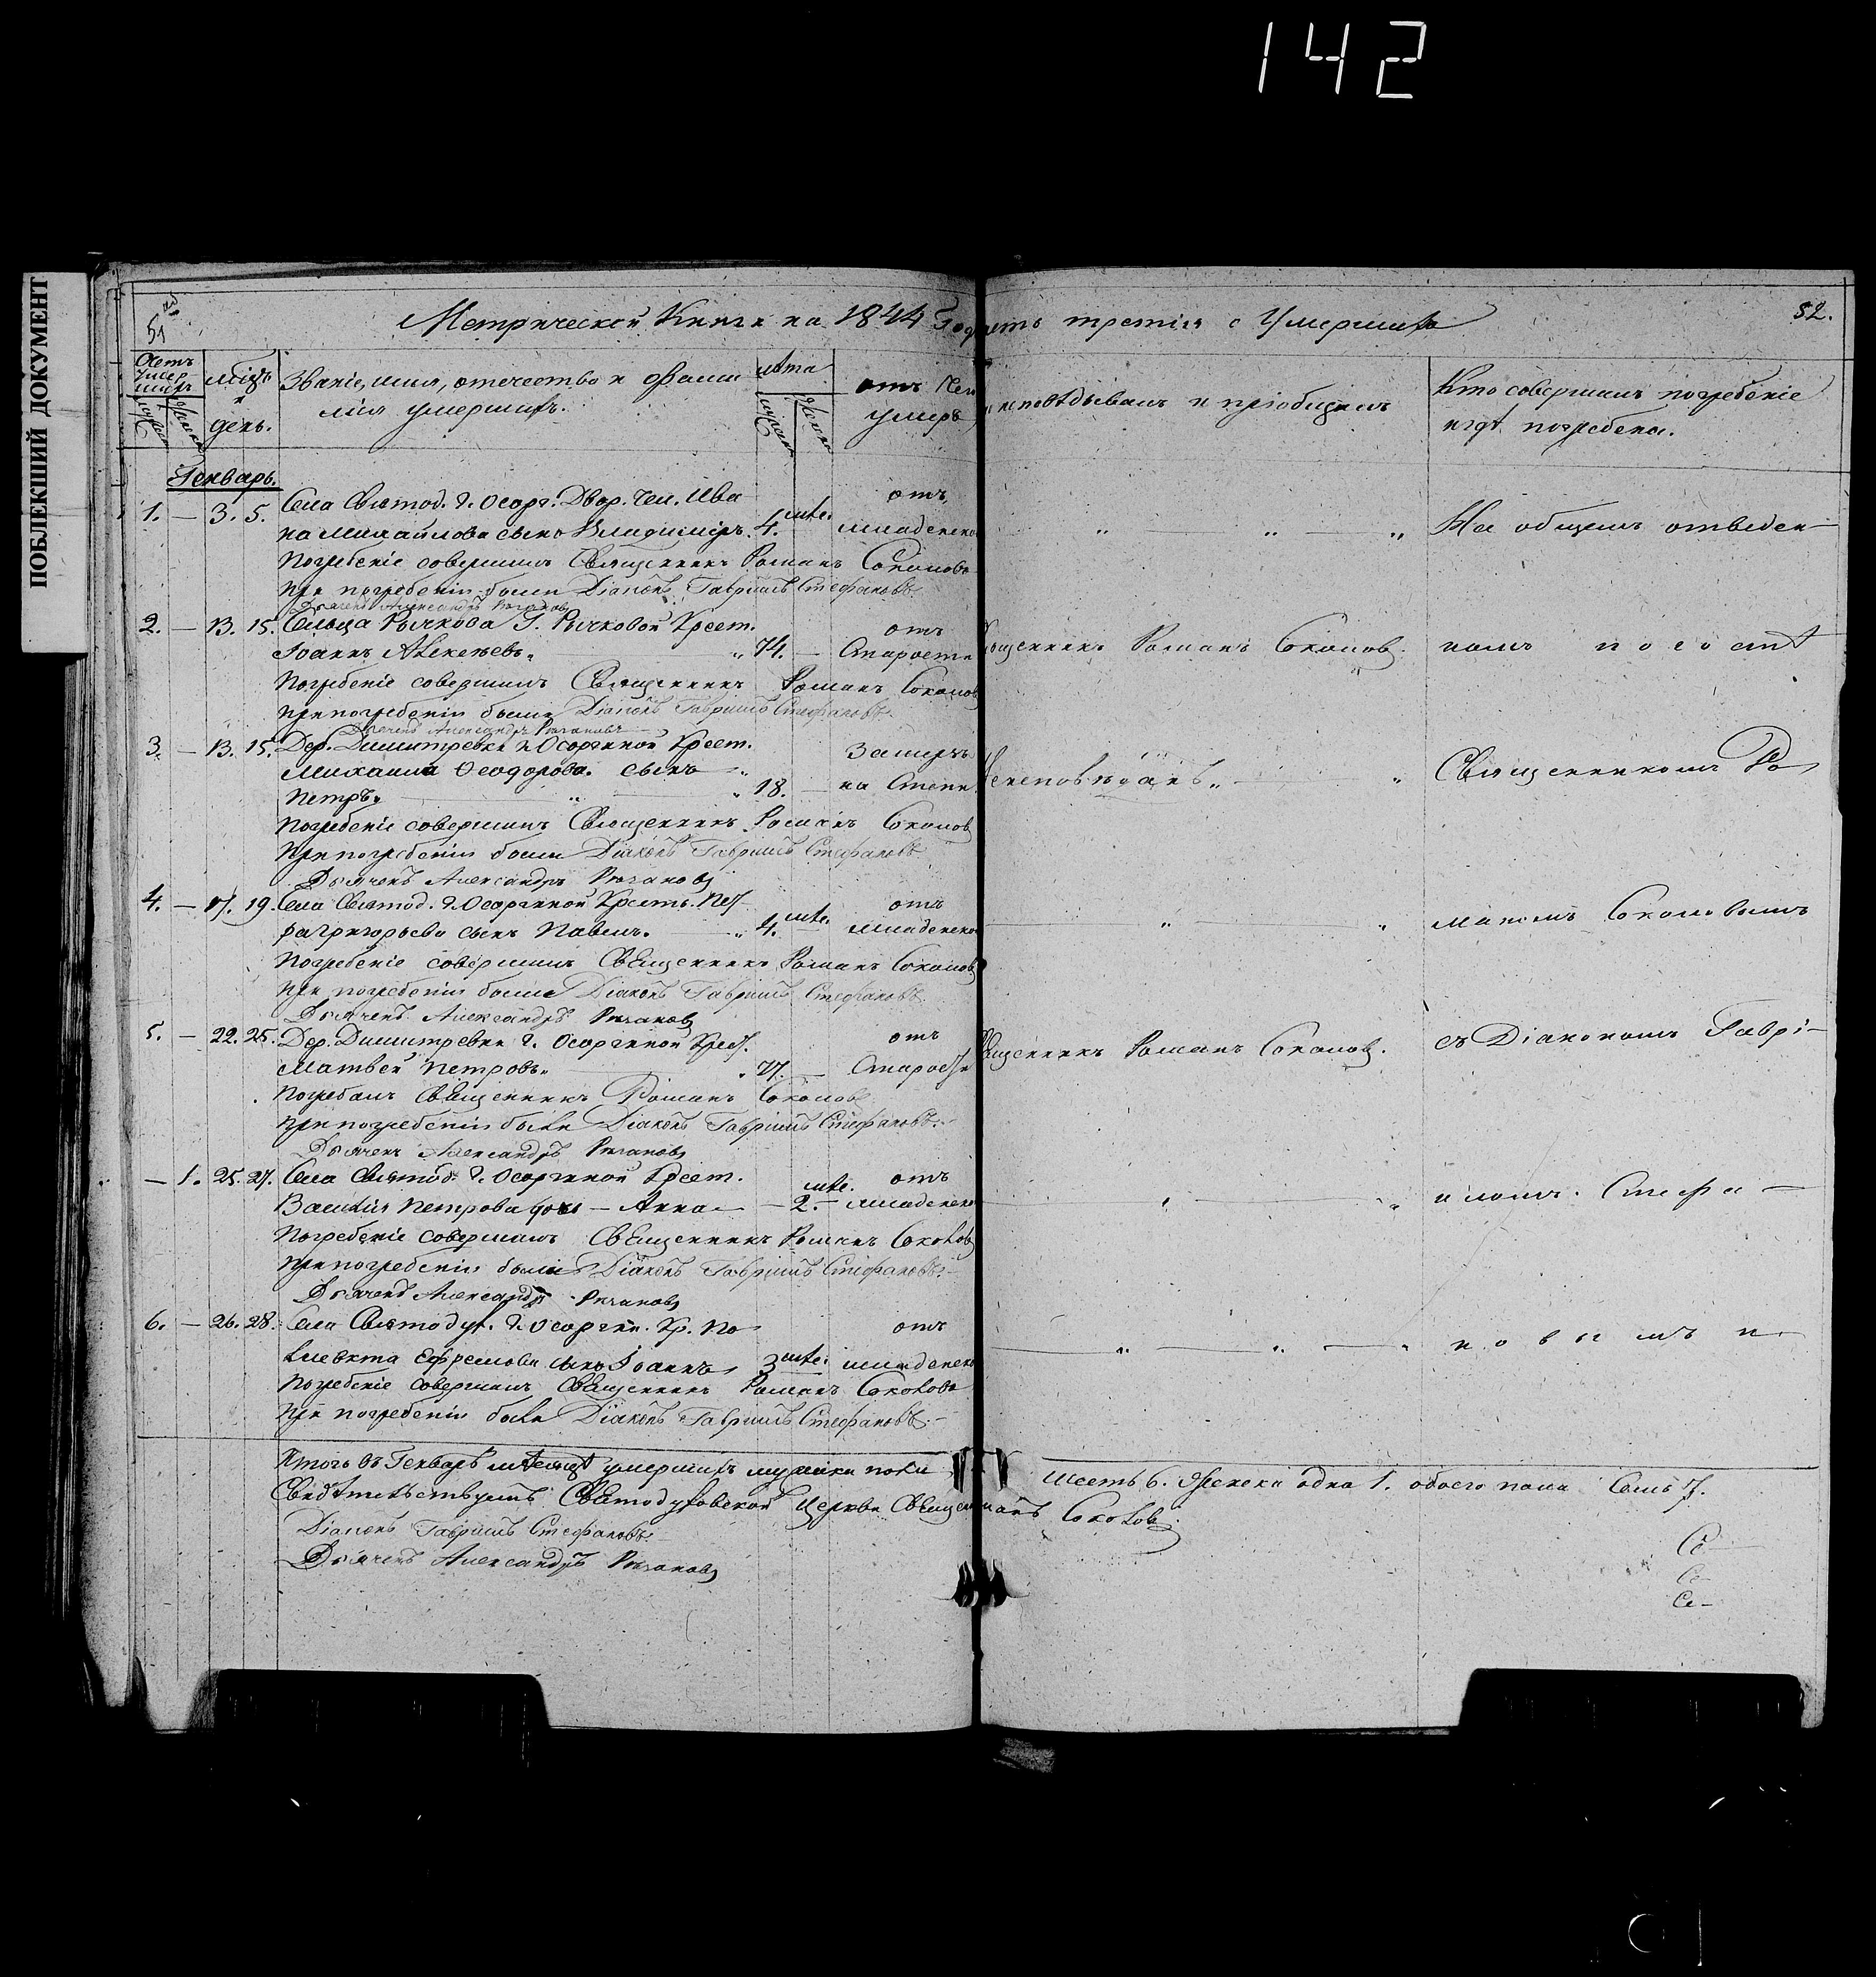 142
ПОБЛЕКШИЙ ДОКУМЕНТ
51
52.
Метрической Книги на 1844 Годъ
часть третія о Умершихъ
Счетъ умершихъ
мѣсяцъ и день.
Званіе, имя, отчество и фамилія умершихъ.
лѣта
отъ чего умеръ
исповѣдывалъ и пріобщалъ
Кто совершалъ погребеніе
и гдѣ погребены.
Генварь.
1. — 3. 5. Села Святод. Г. Осорг. Двор. Чел. Ива
на Михайлова сынъ Владимиръ. 4. мце. отъ младенческ
На общемъ отведен—
Погребеніе совершилъ Священникъ Романъ Соколовъ
При погребеніи были Діаконъ Гавріилъ Стефановъ
Дьячекъ Александръ
2. — 13. 15. Сельца Рычкова Г. Рычковой Крест.
Іоаннъ Алексѣевъ. 74. — отъ Старости
Священникъ Романъ Соколовъ.
номъ погостѣ
Погребеніе совершилъ Священникъ Романъ Соколовъ
При погребеніи были Діаконъ Гавріилъ Стефановъ
Дьячекъ Александръ
3. — 13. 15. Дер. Димитревки Г. Осоргиной Крест.
Михаила Ѳеодорова сынъ
Петръ. 18. — Замерзъ на Степи
Неисповѣданъ
Священникомъ Ро
Погребеніе совершилъ Священникъ Романъ Соколовъ
При погребеніи были Діаконъ Гавріилъ Стефановъ
Дьячекъ Александръ
4. — 17. 19. Села Святод. Г. Осоргиной Кресть. Пет
ра Григорьева сынъ Павелъ. 4. мце. отъ младенческ
маномъ Соколовымъ
Погребеніе совершилъ Священникъ Романъ Соколовъ
При погребеніи были Діаконъ Гавріилъ Стефановъ
Дьячекъ Александръ
5. — 22. 25. Дер. Димитревки Г. Осоргиной Крест.
Матвей Петровъ. 77. — отъ Старости
Священникъ Романъ Соколовъ.
съ Діакономъ Гаврі—
Погребалъ Священникъ Романъ Соколовъ
При погребеніи были Діаконъ Гавріилъ Стефановъ.
Дьячекъ Александръ
— 1. 25. 27. Села Святод. Г. Осоргиной Крест.
Василія Петрова дочь — Анна — 2. мце. отъ младенческ
иломъ. Стефа—
Погребеніе совершалъ Священникъ Романъ Соколовъ
При погребеніи были Діаконъ Гавріилъ Стефановъ.
Дьячекъ Александръ
6. — 26. 28. Села Святодух. Г. Осоргин. Кр. По
лиевкта Ефремова сынъ Іоаннъ 3 мце. отъ младенческ
новымъ
Погребеніе совершилъ Священникъ Романъ Соколовъ
При погребеніи были Діаконъ Гавріилъ Стефановъ.
Итого въ Генварѣ мѣсяцѣ умершихъ мужеска пола шесть 6. Женска одна 1. обоего пола Семь 7.
Свидѣтельствуетъ Святодуховской Церкви Священ Соколовъ.
Діаконъ Гавріилъ Стефановъ
Дьячекъ Александръ
Се—
Се—
Се—